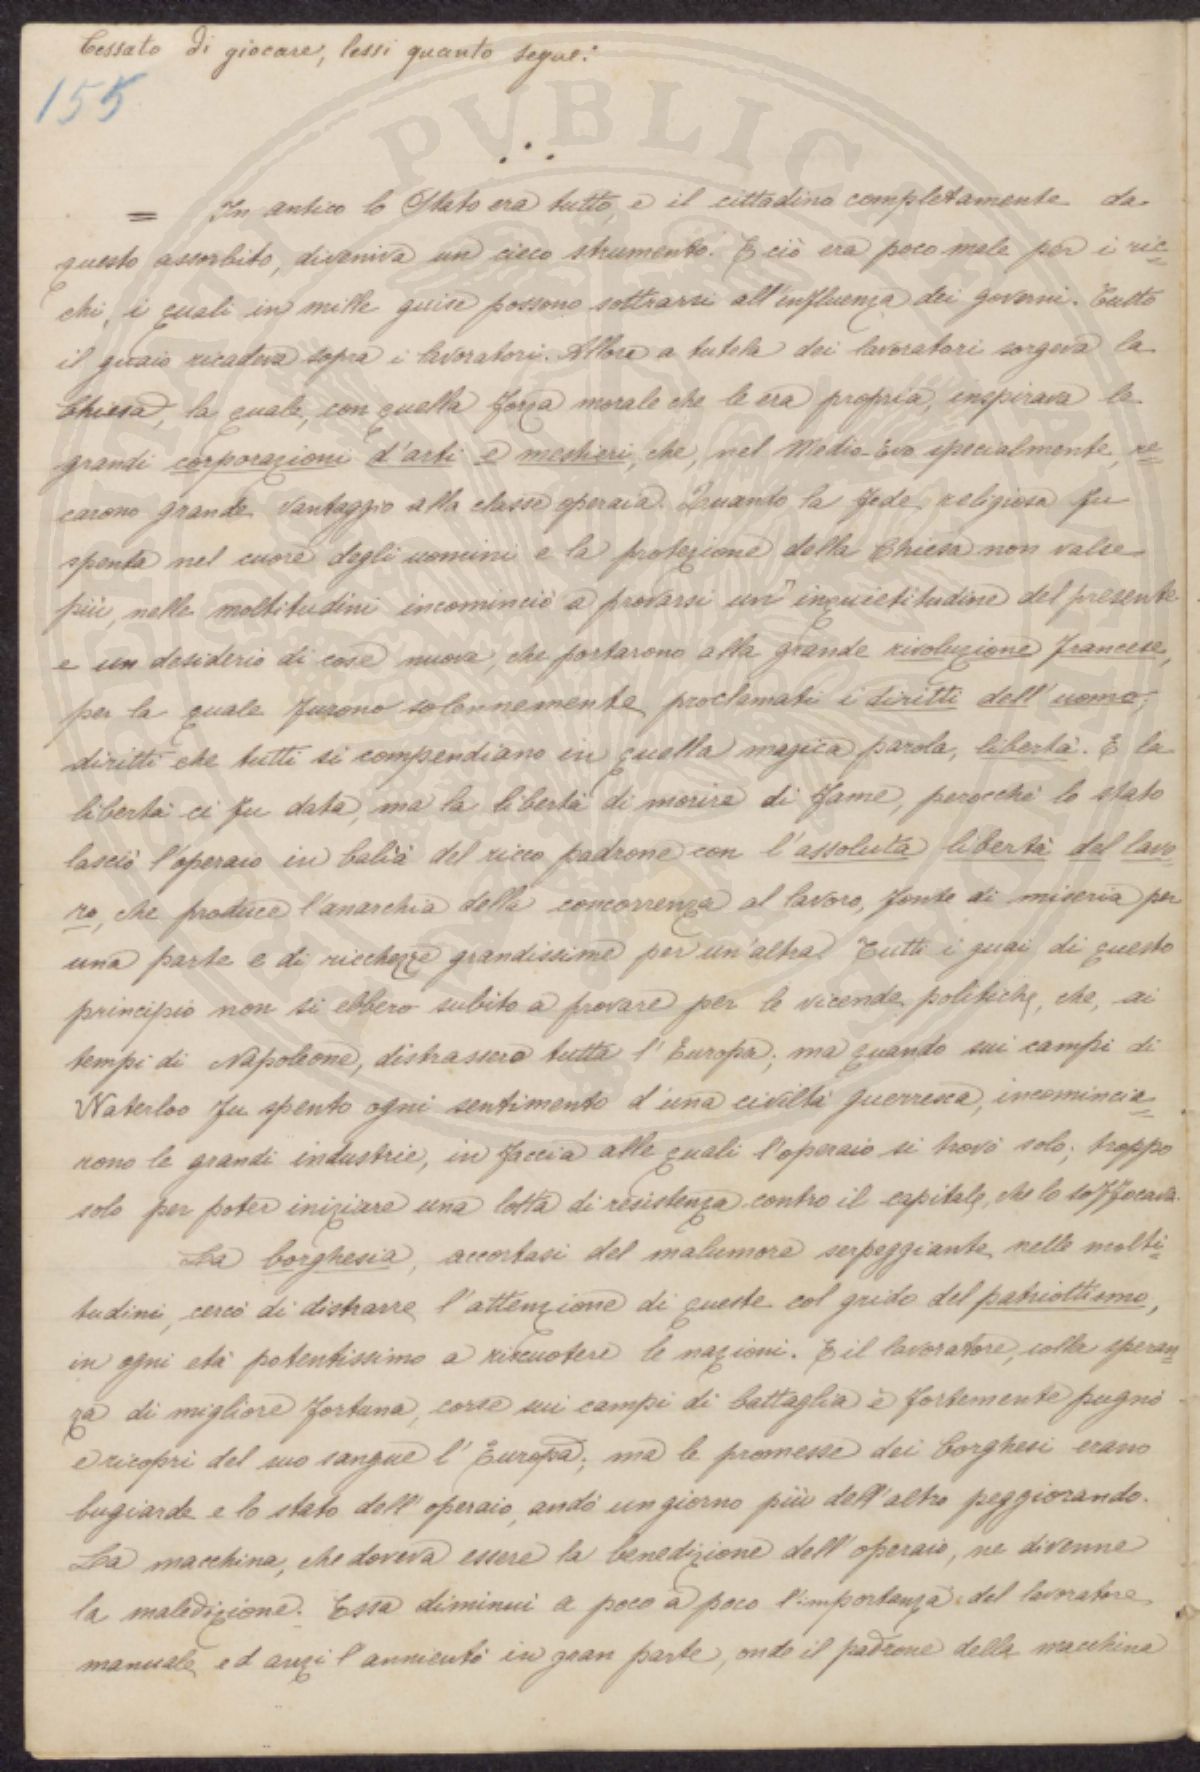 Cessato di giocare, lessi quanto segue:
155
= In antico lo Stato era tutto, e il cittadino completamente da
questo assorbito, diveniva un cieco strumento. E ciò era poco male per i ric=
chi, i quali in mille guise possono sottrarsi all'influenza dei governi. Tutto
il guaio ricadeva sopra i lavoratori. Allora a tutela dei lavoratori sorgeva la
Chiesa, la quale, con quella forza morale che le era propria, inspirava le
grandi corporazioni d'arti e mestieri, che, nel Medio-Evo specialmente, re=
carono grande vantaggio alla classe operaia. Quando la fede religiosa fu
spenta nel cuore degli uomini e la protezione della Chiesa non valse
più, nelle moltitudini incominciò a provarsi un' inquietitudine del presente
e un desiderio di cose nuove, che portarono alla grande rivoluzione francese,
per la quale furono solennemente proclamati i diritti dell'uomo;
diritti che tutti si compendiano in quella magica parola, libertà. E la
libertà ci fu data, ma la libertà di morire di fame, perocchè lo stato
lasciò l'operaio in balìa del ricco padrone con l'assoluta libertà del lavo
ro, che produce l'anarchia della concorrenza al lavoro, fonte di miseria per
una parte e di ricchezze grandissime per un'altra. Tutti i guai di questo
principio non si ebbero subito a provare per le vicende politiche, che, ai
tempi di Napoleone, distrassero tutta l'Europa; ma quando sui campi di
Waterloo fu spento ogni sentimento d'una civiltà guerresca, incomincia=
rono le grandi industrie, in faccia alle quali l'operaio si trovò solo; troppo
solo per poter iniziare una lotta di resistenza contro il capitale, che lo soffocava.
La borghesia, accortasi del malumore serpeggiante nelle molti=
tudini, cercò di distrarre l'attenzione di queste col grido del patriottismo,
in ogni età potentissimo a riscuotere le nazioni. E il lavoratore, colla speran=
za di migliore fortuna, corse sui campi di battaglia e fortemente pugnò
e ricoprì del suo sangue l'Europa; ma le promesse dei borghesi erano
bugiarde e lo stato dell'operaio andò un giorno più dell'altro peggiorando.
La macchina, che doveva essere la benedizione dell'operaio, ne divenne
la maledizione. Essa diminuì a poco a poco l'importanza del lavoratore
manuale, ed anzi l'annientò in gran parte, onde il padrone della macchina